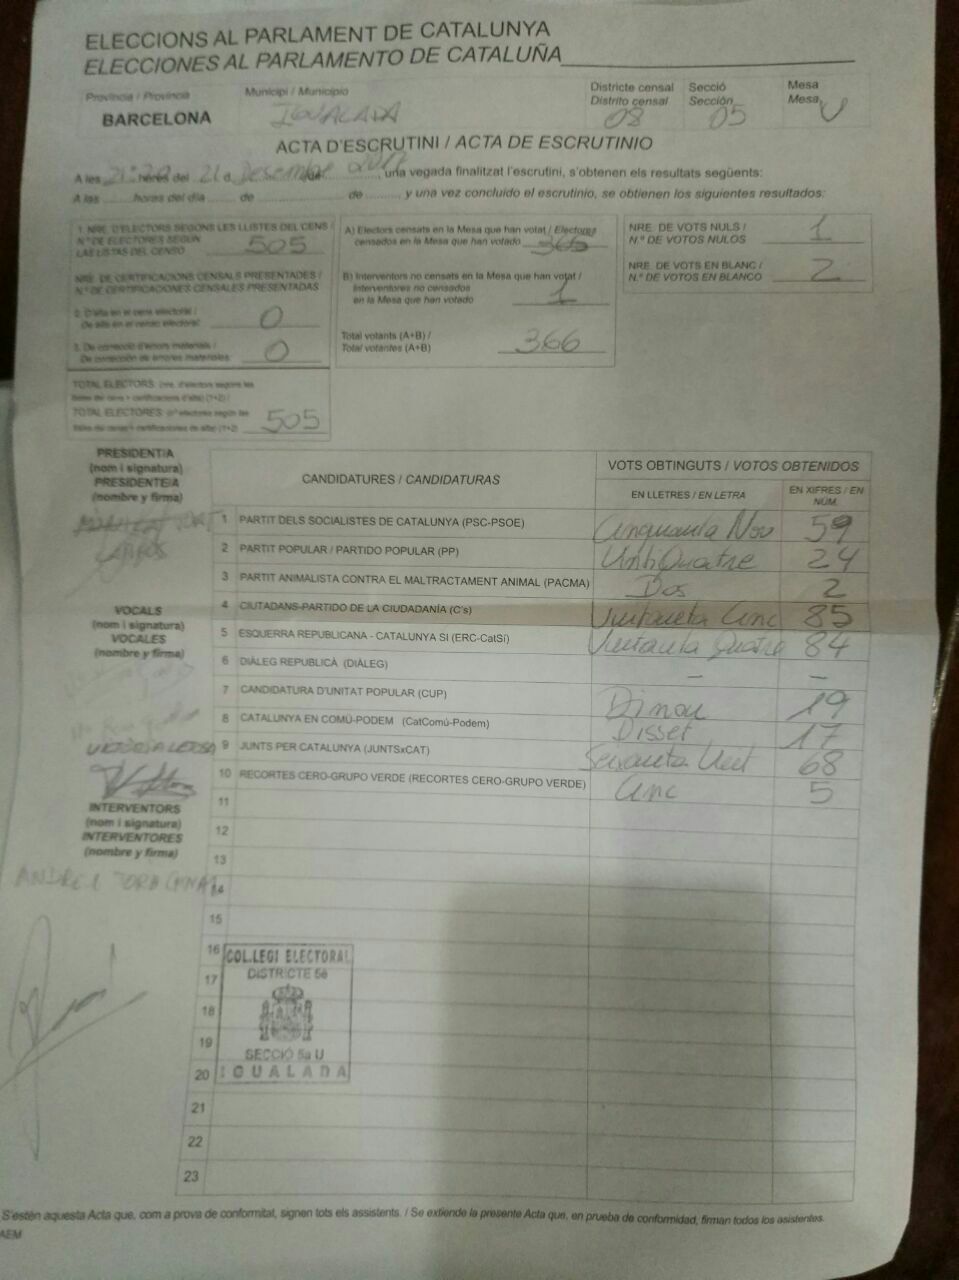 ELECCIONS AL PARLAMENT DE CATALUNYA
ELECCIONES AL PARLAMENTO DE CATALUÑA
Província / Provincia
BARCELONA
Municipi / Municipio
IGUALADA
Districte censal
Distrito censal
08
Secció
Sección
05
Mesa
Mesa
U
ACTA D'ESCRUTINI / ACTA DE ESCRUTINIO
A les hores del 21 d Desembre, una vegada finalitzat l'escrutini, s'obtenen els resultats següents:
A las horas del día de de y una vez concluido el escrutinio, se obtienen los siguientes resultados:
1. NRE. D'ELECTORS SEGONS LES LLISTES DEL CENS /
N.º DE ELECTORES SEGÚN
LAS LISTAS DEL CENSO
505
NRE. DE CERTIFICACIONS CENSALS PRESENTADES /
N.º DE CERTIFICACIONES CENSALES PRESENTADAS
2. D'alta en el cens electoral /
De alta en el censo electoral:
0
3. De correcció d'errors materials /
De corrección de errores materiales:
0
TOTAL ELECTORS: (nre. d'electors segons les
llistes del cens + certificacions d'alta) (1+2) /
TOTAL ELECTORES: (nº electores según las
listas del censo + certificaciones de alta) (1+2)
505
A) Electors censats en la Mesa que han votat / Electores
censados en la Mesa que han votado
365
B) Interventors no censats en la Mesa que han votat /
Interventores no censados
en la Mesa que han votado
1
Total votants (A+B) /
Total votantes (A+B)
366
NRE. DE VOTS NULS /
N.º DE VOTOS NULOS
1
NRE. DE VOTS EN BLANC /
N.º DE VOTOS EN BLANCO
2
PRESIDENT/A
(nom i signatura)
PRESIDENTE/A
(nombre y firma)
CANDIDATURES / CANDIDATURAS
VOTS OBTINGUTS / VOTOS OBTENIDOS
EN LLETRES / EN LETRA
EN XIFRES / EN
NÚM.
1 PARTIT DELS SOCIALISTES DE CATALUNYA (PSC-PSOE) Cinquanta Nou 59
2 PARTIT POPULAR / PARTIDO POPULAR (PP) Vinti Quatre 24
3 PARTIT ANIMALISTA CONTRA EL MALTRACTAMENT ANIMAL (PACMA) Dos 2
4 CIUTADANS-PARTIDO DE LA CIUDADANÍA (C's) Vuitanta Cinc 85
5 ESQUERRA REPUBLICANA - CATALUNYA SI (ERC-CatSí) Vuitanta Quatre 84
6 DIÀLEG REPUBLICÀ (DIÀLEG) - -
7 CANDIDATURA D'UNITAT POPULAR (CUP) Dinou 19
8 CATALUNYA EN COMÚ-PODEM (CatComú-Podem) Disset 17
9 JUNTS PER CATALUNYA (JUNTSxCAT) Seixanta Vuit 68
10 RECORTES CERO-GRUPO VERDE (RECORTES CERO-GRUPO VERDE) Cinc 5
11
12
13
14
15
16
17
18
19
20
21
22
23
VOCALS
(nom i signatura)
VOCALES
(nombre y firma)
INTERVENTORS
(nom i signatura)
INTERVENTORES
(nombre y firma)
COL.LEGI ELECTORAL
DISTRICTE 5è
SECCIÓ 5a U
IGUALADA
S'estén aquesta Acta que, com a prova de conformitat, signen tots els assistents. / Se extiende la presente Acta que, en prueba de conformidad, firman todos los asistentes.
AEM